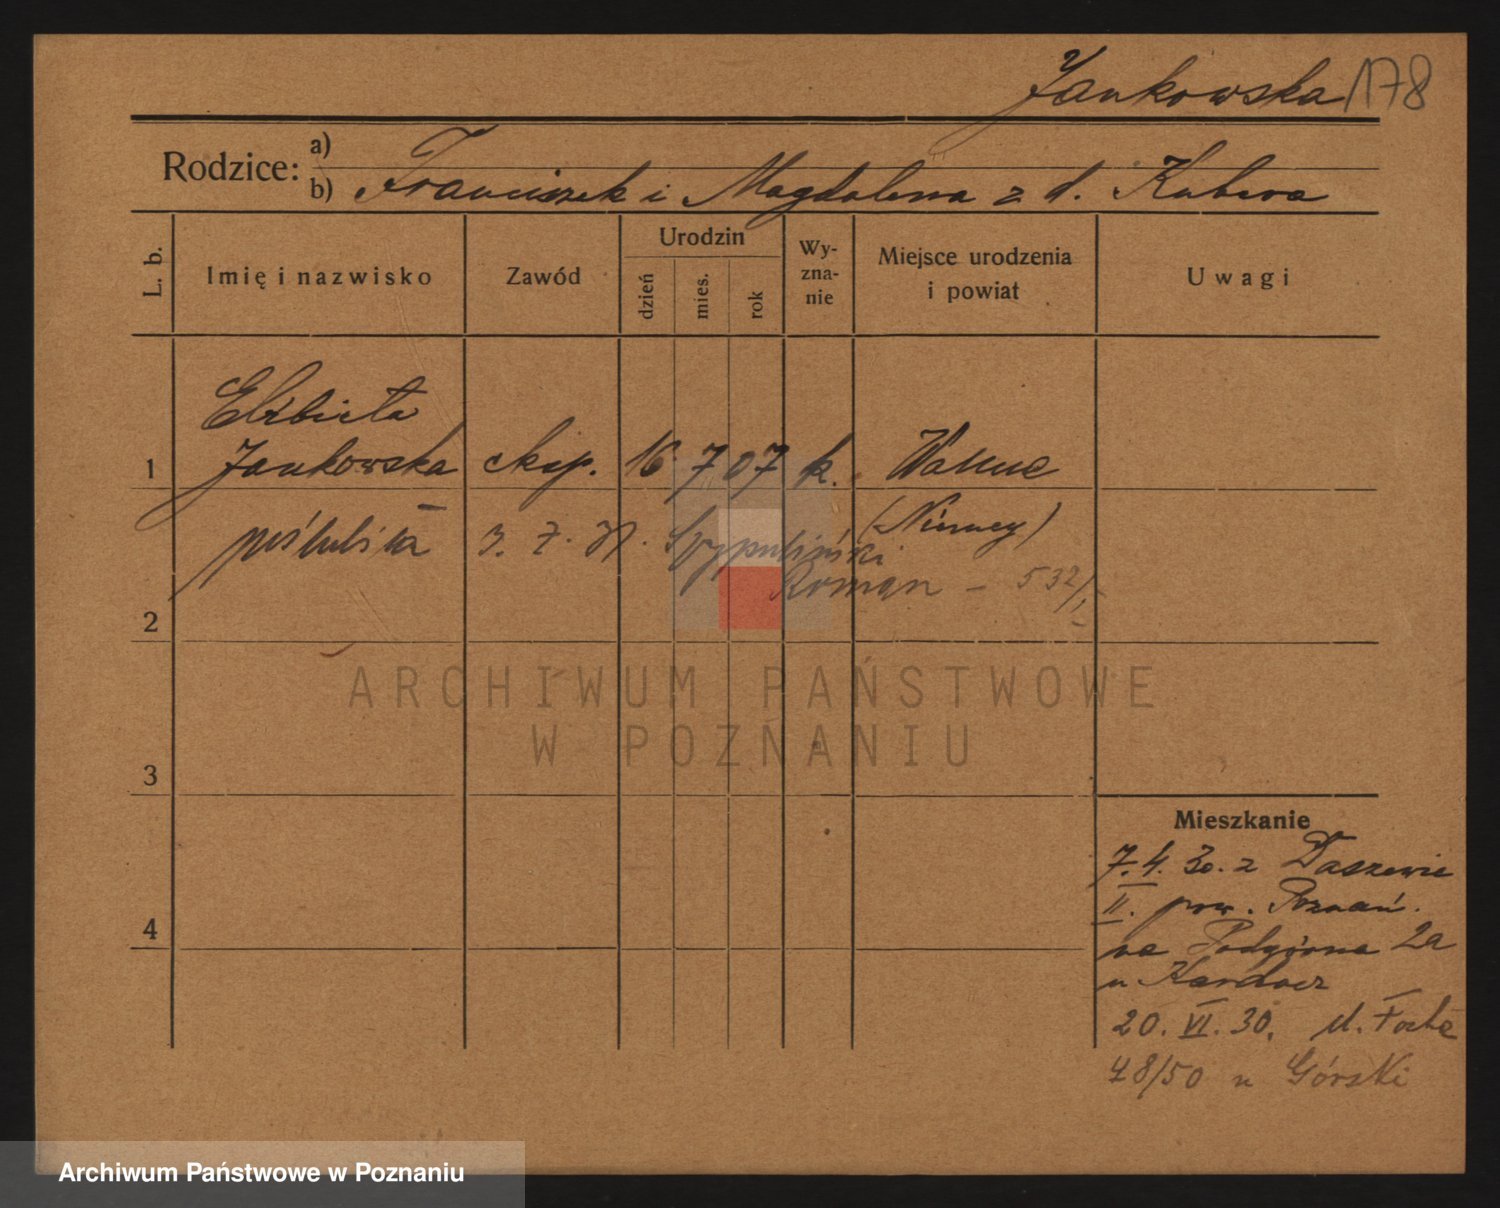 Jankowska 178
Rodzice: a)
b) Franciszek i Magdalena z d. Kubera
L. b.
Imię i nazwisko
Zawód
Urodzin
dzień
mies.
rok
Wy-
zna-
nie
Miejsce urodzenia
i powiat
Uwagi
Elżbieta
1 Jankowska eksp. 16 7 07 k. Wanne
(Niemcy)
poślubiła 3. 7. Szypuliński
Roman – 532/
2
ARCHIWUM PAŃSTWOWE
W POZNANIU
3
Mieszkanie
7.4.30. z Daszewic
II. pow. Poznań.
4
na Podgórna 2a
u
20. VI. 30. ul. Focha
48/50 u Górski
Archiwum Państwowe w Poznaniu